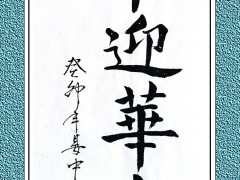 迎華
癸卯年中